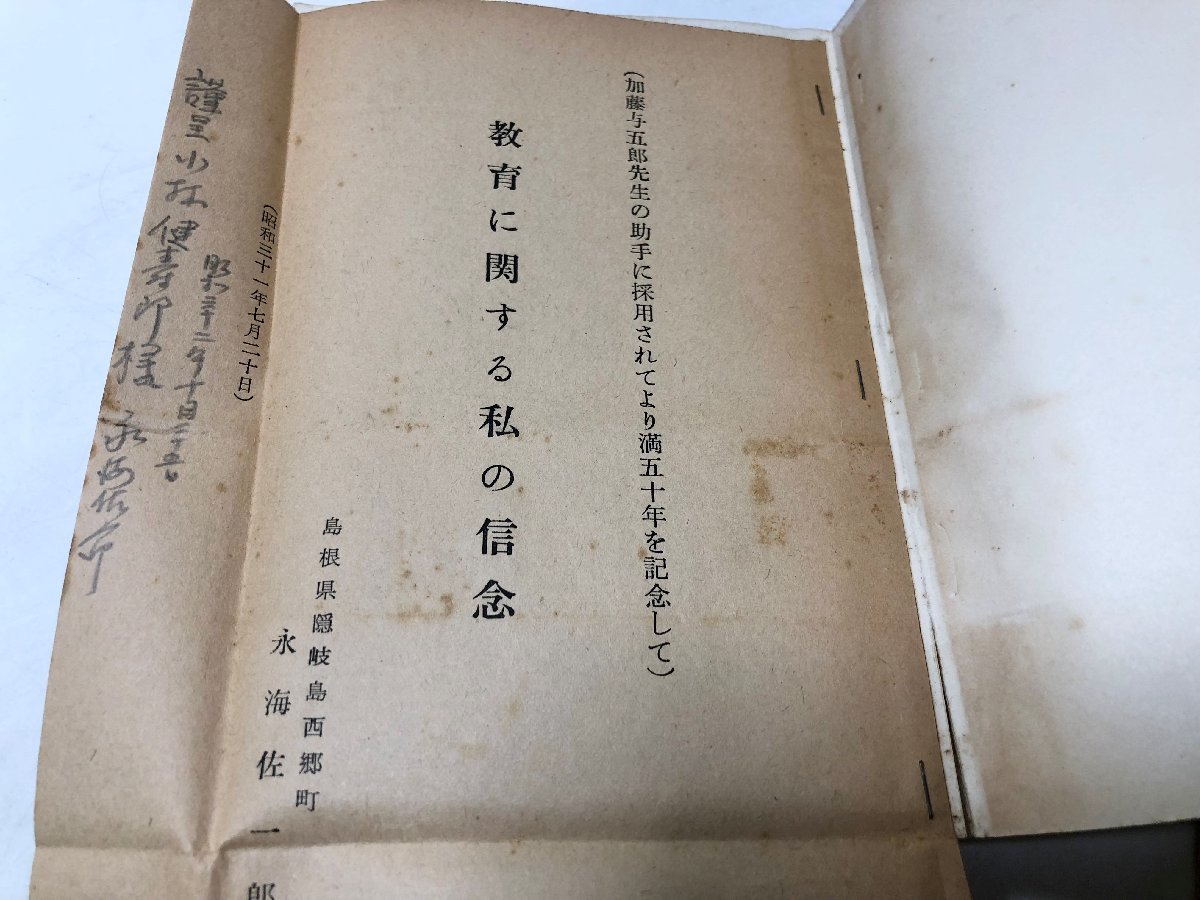 (加藤与五郎先生の助手に採用されてより満五十年を記念して)
教育に関する私の信念
島根県隠岐島西郷町
永海佐一郎
(昭和三十一年七月二十日)
昭三十二年十日二十五日
謹呈小林健寿郎様 永海佐一郎